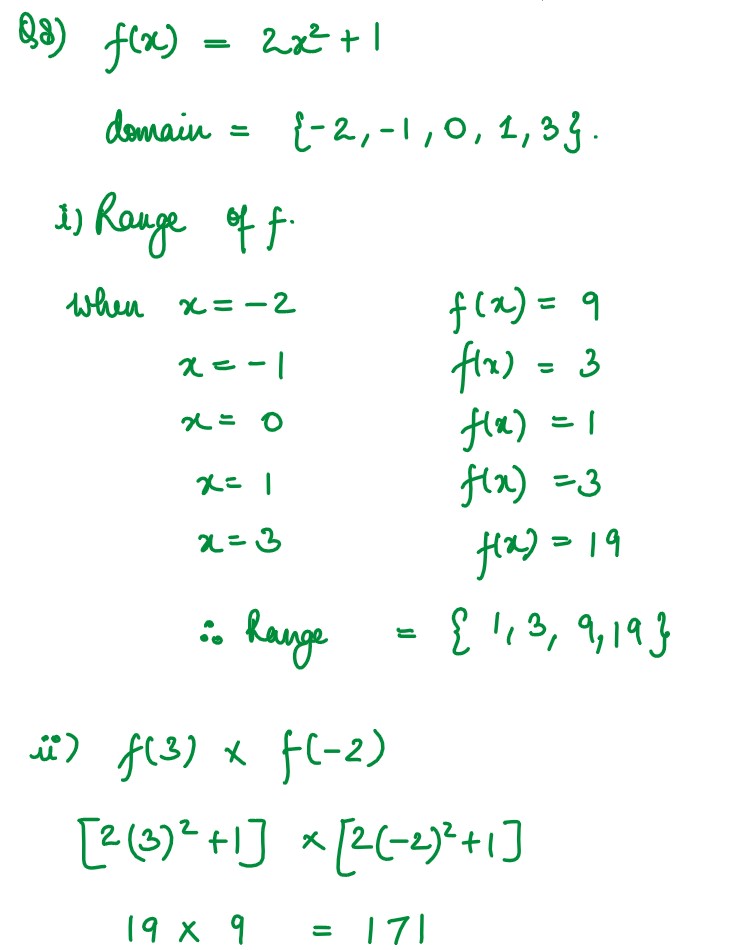 Q8) f(x) = 2x² + 1
domain = {-2, -1, 0, 1, 3}.
i) Range of f.
when x = -2 f(x) = 9
x = -1 f(x) = 3
x = 0 f(x) = 1
x = 1 f(x) = 3
x = 3 f(x) = 19
∴ Range = { 1, 3, 9, 19 }
ii) f(3) × f(-2)
[2(3)² + 1] × [2(-2)² + 1]
19 × 9 = 171